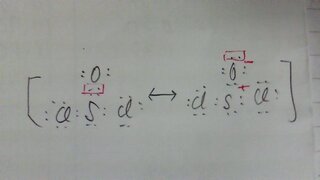 [ :O: :O: ]
:Cl : S : Cl: ↔ :Cl : S : Cl: +